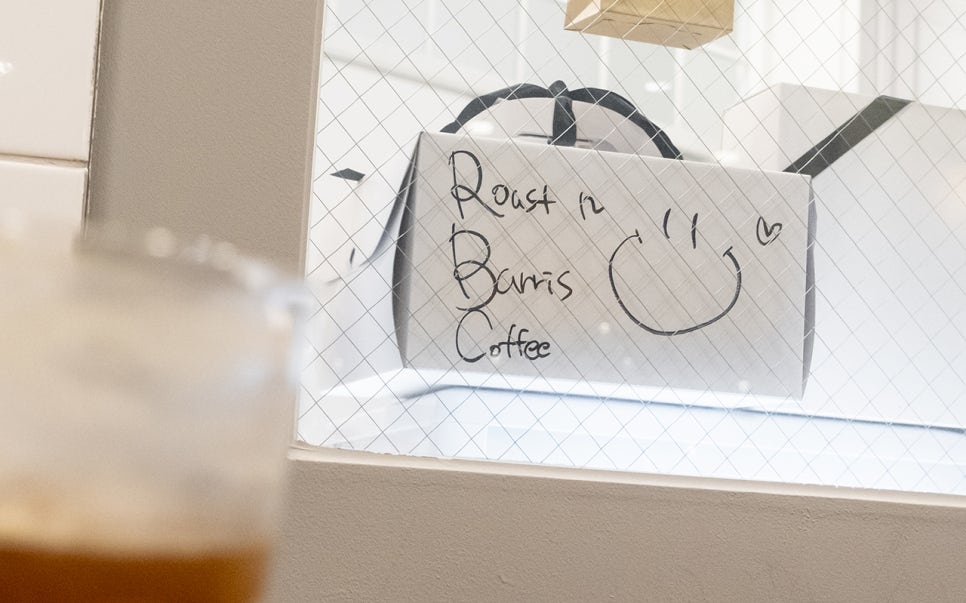 Roast in
Barris
Coffee